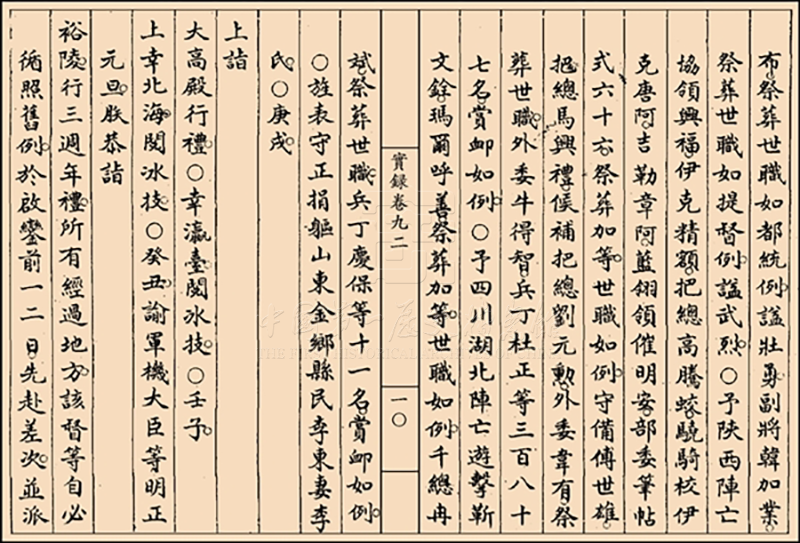 布祭葬世職如都統例諡壯勇副將韓加業
祭葬世職如提督例諡武烈○予陝西陣亡
協領興福伊克精額把總高騰蛟驍騎校伊
克唐阿吉勒章阿藍翎領催明安部委筆帖
式六十六祭葬加等世職如例守備傅世雄
把總馬興禮候補把總劉元勳外委韋有祭
葬世職外委牛得智兵丁杜正等三百八十
七名賞卹如例○予四川湖北陣亡遊擊靳
文銓瑪爾呼善祭葬加等世職如例千總冉
實錄卷九二
一〇
斌祭葬世職兵丁慶保等十一名賞卹如例
○旌表守正捐軀山東金鄉縣民李東妻李
氏○庚戌
上詣
大高殿行禮○幸瀛臺閱冰技○壬子
上幸北海閱冰技○癸丑諭軍機大臣等明正
元旦朕恭詣
裕陵行三週年禮所有經過地方該督等自必
循照舊例於啟鑾前一二日先赴差次並派